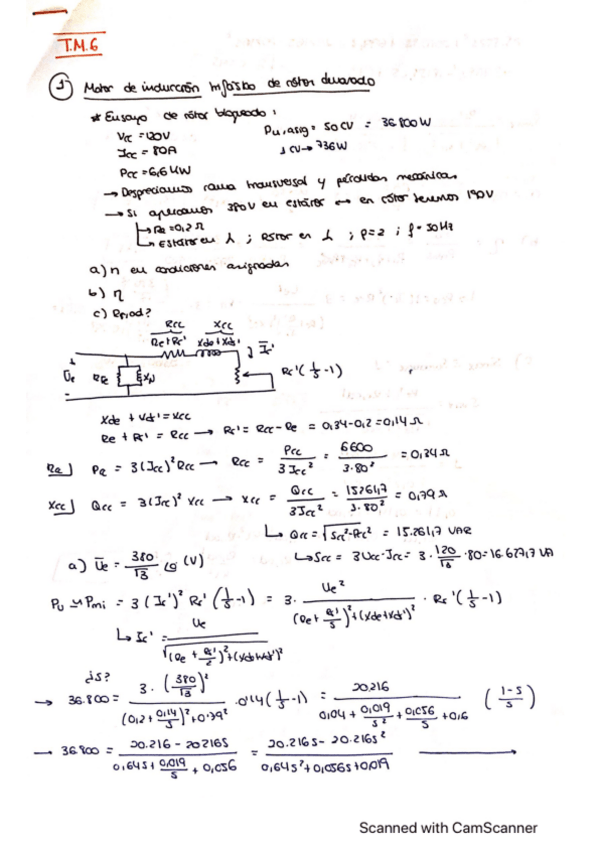 T.M.6
1) Motor de inducción trifásico de rótor devanado
* Ensayo de rótor bloqueado:
Vcc = 120V
Pu,asig = 50CV = 36.800W
Icc = 80A
1CV → 736W
Pcc = 6,6 kW
→ Despreciamos rama transversal y pérdidas mecánicas
→ Si aplicamos 380V en estátor ↔ en rótor tenemos 190V
↳ Re = 0,2 Ω
↳ Estátor en λ ; Rótor en λ ; p=2 ; f=50Hz
a) n en condiciones asignadas
b) η
c) Rarod?
Rcc Xcc
Re+Rr' Xde+Xdr' ↓ Ir'
Ue RFe Xμ Rr'(1/s -1)
Xde + Xdr' = Xcc
Re + Rr' = Rcc → Rr' = Rcc - Re = 0,34-0,2 = 0,14 Ω
Re] Pe = 3(Icc)² Rcc → Rcc = Pcc/3Icc² = 6600/3·80² = 0,34 Ω
Xcc] Qcc = 3(Icc)² Xcc → Xcc = Qcc/3Icc² = 15261,7/3·80² = 0,79 Ω
↳ Qcc = √Scc²-Pcc² = 15.261,7 VAR
a) Ue = 380/√3 ∠0 (V)
↳ Scc = 3Ucc·Icc = 3·120/√3·80 = 16.627,7 VA
Pu ≃ Pmi = 3(Ir')² Rr'(1/s -1) = 3·Ue²/(Re+Rr'/s)²+(Xde+Xdr')² · Rr'(1/s -1)
↳ Ir' = Ue/√(Re+Rr'/s)²+(Xde+Xdr')²
¿s?
→ 36.800 = 3·(380/√3)²/(0,2+0,14/s)²+0,79² · 0,14(1/s -1) = 20.216/0,04+0,019/s²+0,056/s+0,6 (1-s/s)
→ 36.800 = 20.216-20216s/0,64s+0,019/s+0,056 = 20.216s-20.216s²/0,64s²+0,056s+0,019 →
Scanned with CamScanner